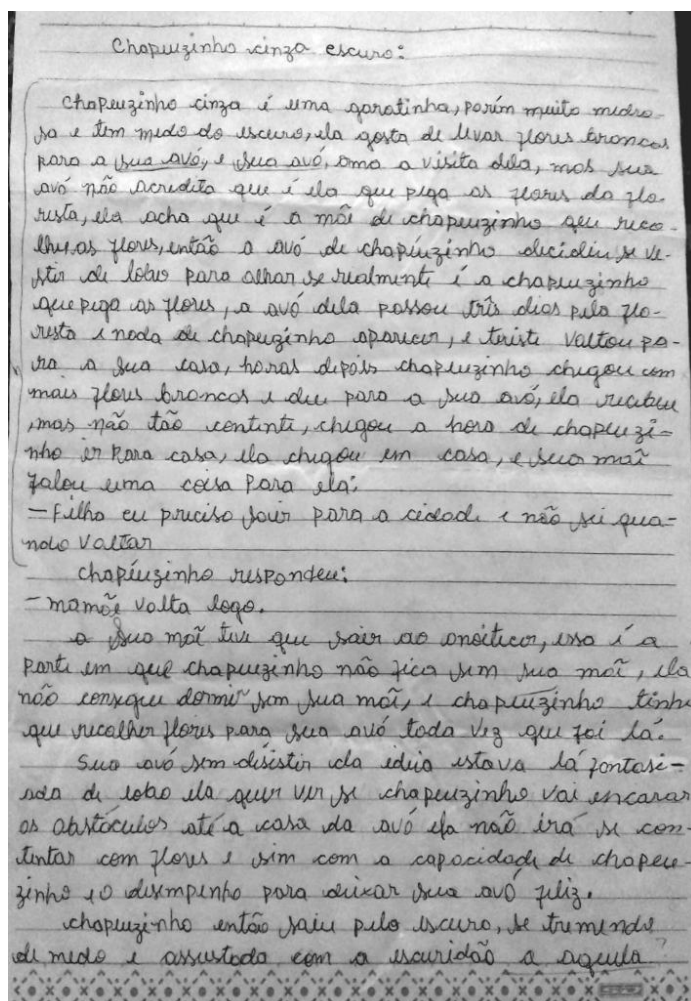 Chapeuzinho cinza escuro:
Chapeuzinho cinza é uma garotinha, porém muito medro-
sa e tem medo do escuro, ela gosta de levar flores brancas
para a sua avó, e sua avó, ama a visita dela, mas sua
avó não acredita que é ela que pega as flores da flo-
resta, ela acha que é a mãe de chapeuzinho que reco-
lhe, as flores, então a avó de chapéuzinho decidiu se ve-
stir de lobo para olhar se realmente é a chapeuzinho
que pega as flores, a avó dela passou três dias pela flo-
resta e nada de chapeuzinho aparecer, e triste voltou pa-
ra a sua casa, horas depois chapeuzinho chegou com
mais flores brancas e deu para a sua avó, ela recebeu
, mas não tão contente, chegou a hora de chapeuzi-
nho ir para casa, ela chegou em casa, e sua mãe
falou uma coisa para ela:
— Filha eu preciso sair para a cidade e não sei qua-
ndo voltar
chapéuzinho respondeu:
- mamãe volta logo.
a sua mãe teve que sair ao anoitecer, essa é a
parte em que chapeuzinho não fica sem sua mãe, ela
não consegue dormir sem sua mãe, e chapeuzinho tinha
que recolher flores para sua avó toda vez que foi lá.
Sua avó sem desistir da ideia estava lá fantasi-
ada de lobo ela quer ver se chapeuzinho vai encarar
os obstáculos até a casa da avó ela não irá se con-
tentar com flores e sim com a capacidade de chapeu-
zinho e o desempenho para deixar sua avó feliz.
chapeuzinho então saiu pelo escuro, se tremendo
de medo e assustada com a escuridão a aquela